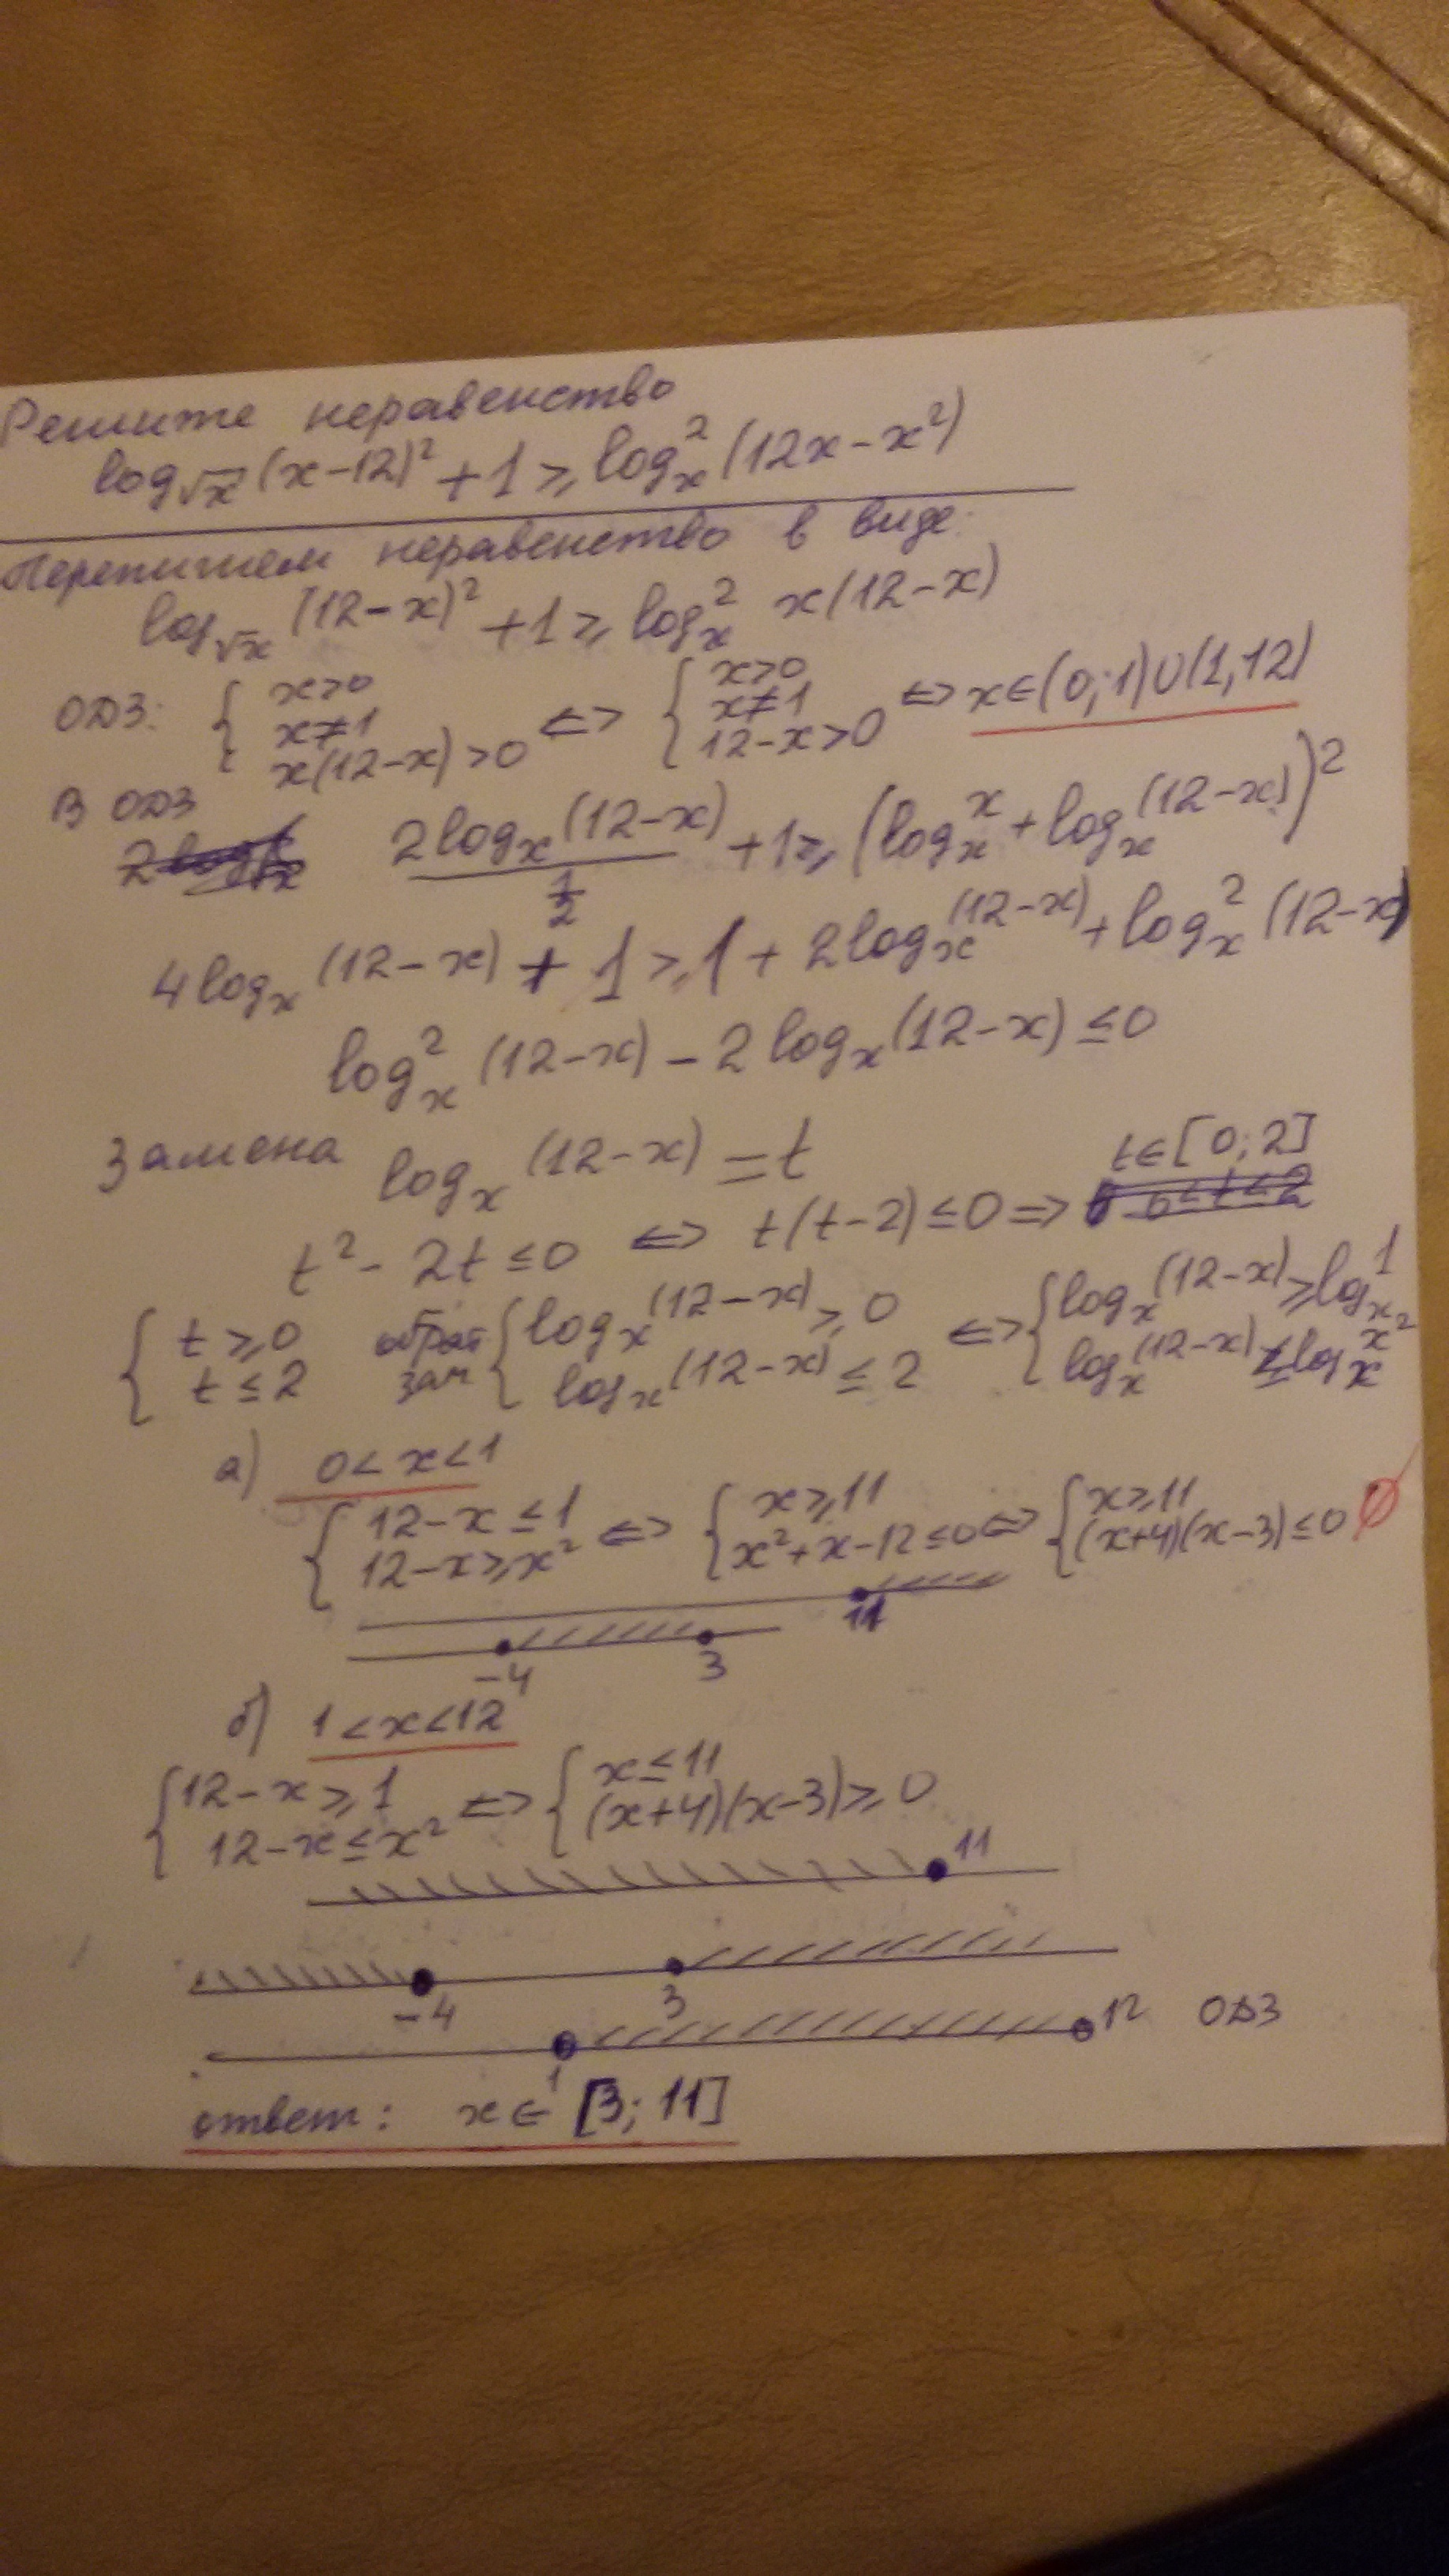 Решите неравенство
log_√x (x-12)² + 1 ≥ log²_x (12x - x²)
Перепишем неравенство в виде:
log_√x (12-x)² + 1 ≥ log²_x x(12-x)
ОДЗ: { x>0 x≠1 x(12-x)>0 ⇔ { x>0 x≠1 12-x>0 ⇔ x∈(0;1)∪(1,12)
В ОДЗ
2log_x (12-x) / ½ + 1 ≥ (log_x x + log_x (12-x))²
4log_x (12-x) + 1 ≥ 1 + 2log_x (12-x) + log²_x (12-x)
log²_x (12-x) - 2log_x (12-x) ≤ 0
Замена log_x (12-x) = t
t² - 2t ≤ 0 ⇔ t(t-2) ≤ 0 ⇒ t∈[0;2]
{ t ≥ 0 t ≤ 2 обрат зам { log_x (12-x) ≥ 0 log_x (12-x) ≤ 2 ⇔ { log_x (12-x) ≥ log_x 1 log_x (12-x) ≤ log_x x²
а) 0 < x < 1
{ 12-x ≤ 1 12-x ≥ x² ⇔ { x ≥ 11 x²+x-12 ≤ 0 ⇔ { x ≥ 11 (x+4)(x-3) ≤ 0 ∅
11
-4 3
б) 1 < x < 12
{ 12-x ≥ 1 12-x ≤ x² ⇔ { x ≤ 11 (x+4)(x-3) ≥ 0
11
-4 3
1 12 ОДЗ
ответ: x ∈ [3; 11]